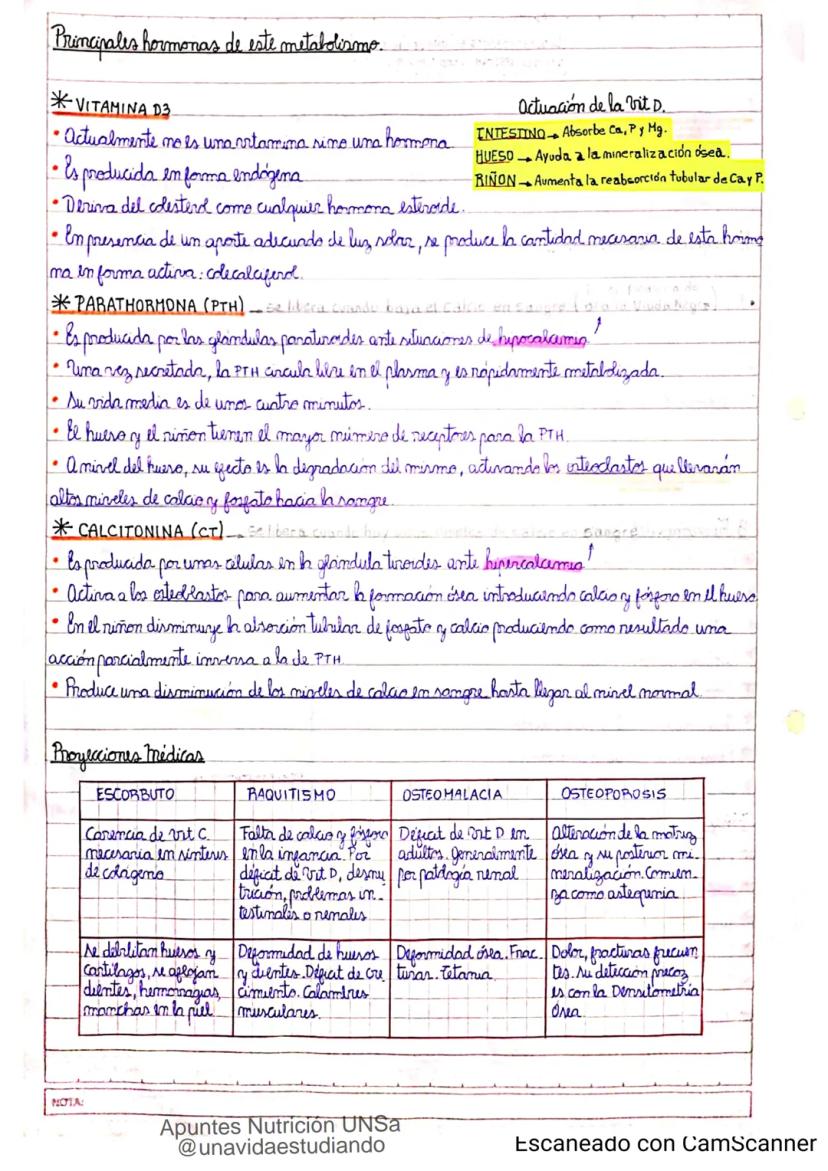 Principales hormonas de este metabolismo.
* VITAMINA D3
Actuación de la Vit D.
• Actualmente no es una vitamina sino una hormona
INTESTINO → Absorbe Ca, P y Mg.
HUESO → Ayuda a la mineralización ósea.
• Es producida en forma endógena
RIÑON → Aumenta la reabsorción tubular de Ca y P.
• Deriva del colesterol como cualquier hormona esteroide.
• En presencia de un aporte adecuado de luz solar, se produce la cantidad necesaria de esta hormo
na en forma activa: colecalciferol.
* PARATHORMONA (PTH) → se libera cuando baja el Calcio en Sangre
• Es producida por las glándulas paratiroides ante situaciones de hipocalcemia
• Una vez secretada, la PTH circula libre en el plasma y es rápidamente metabolizada.
• Su vida media es de unos cuatro minutos.
• El hueso y el riñon tienen el mayor número de receptores para la PTH.
• A nivel del hueso, su efecto es la degradación del mismo, activando los osteoclastos que llevarán
altos niveles de calcio y fosfato hacia la sangre.
* CALCITONINA (CT) → se libera cuando hay
• Es producida por unas células en la glándula tiroides ante hipercalcemia
• Activa a los osteoblastos para aumentar la formación ósea introduciendo calcio y fósforo en el hueso.
• En el riñon disminuye la absorción tubular de fosfato y calcio produciendo como resultado una
acción parcialmente inversa a la de PTH.
• Produce una disminución de los niveles de calcio en sangre hasta llegar al nivel normal.
Proyecciones Médicas
ESCORBUTO
RAQUITISMO
OSTEOMALACIA
OSTEOPOROSIS
Carencia de Vit C.
necesaria en síntesis
de colágeno
Falta de calcio y fósforo
en la infancia. Por
déficit de Vit D, desnu
trición, problemas in-
testinales o renales
Déficit de Vit D en
adultos. Generalmente
por patología renal
Alteración de la matriz
ósea y su posterior mi
neralización. Comien-
za como osteopenia
Se debilitan huesos y
cartílagos, se aflojan
dientes, hemorragias,
manchas en la piel
Deformidad de huesos
y dientes. Déficit de cre
cimiento. Calambres
musculares.
Deformidad ósea. Frac
turas. Tetania.
Dolor, fracturas frecuen
tes. Su detección precoz
es con la Densitometría
Ósea.
NOTA:
Apuntes Nutrición UNSa
@unavidaestudiando
Escaneado con CamScanner